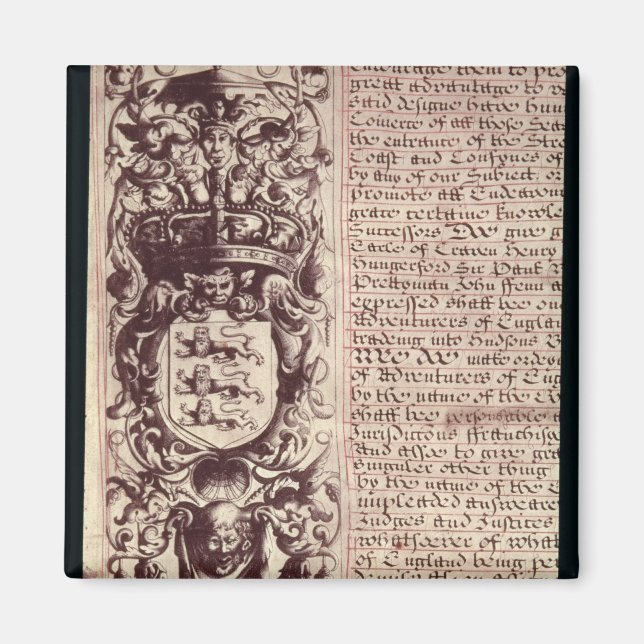 encourage them to pro
great advantage to
said designe have hum
Comerce of all those Sea
the entrance of the Stre
Coast and Confynes of
by any of our Subject or
promote all Endeavou
grate certaine knowle
Successors DO give g
Earle of Craven Henry
Hungerford Sir Paul
Prettyman John ffenn a
expressed shall bee one
Adventurers of Englan
trading into Hudsons B
WEE DO make ordey
of Adventurers of Eng
by the name of the
shall bee personable a
Jurisdictons ffranchise
And alsoe to give gra
singuler other thing
by the name of the
impleaded answeare
Judges and Justices
whatsoever of what
of England being per